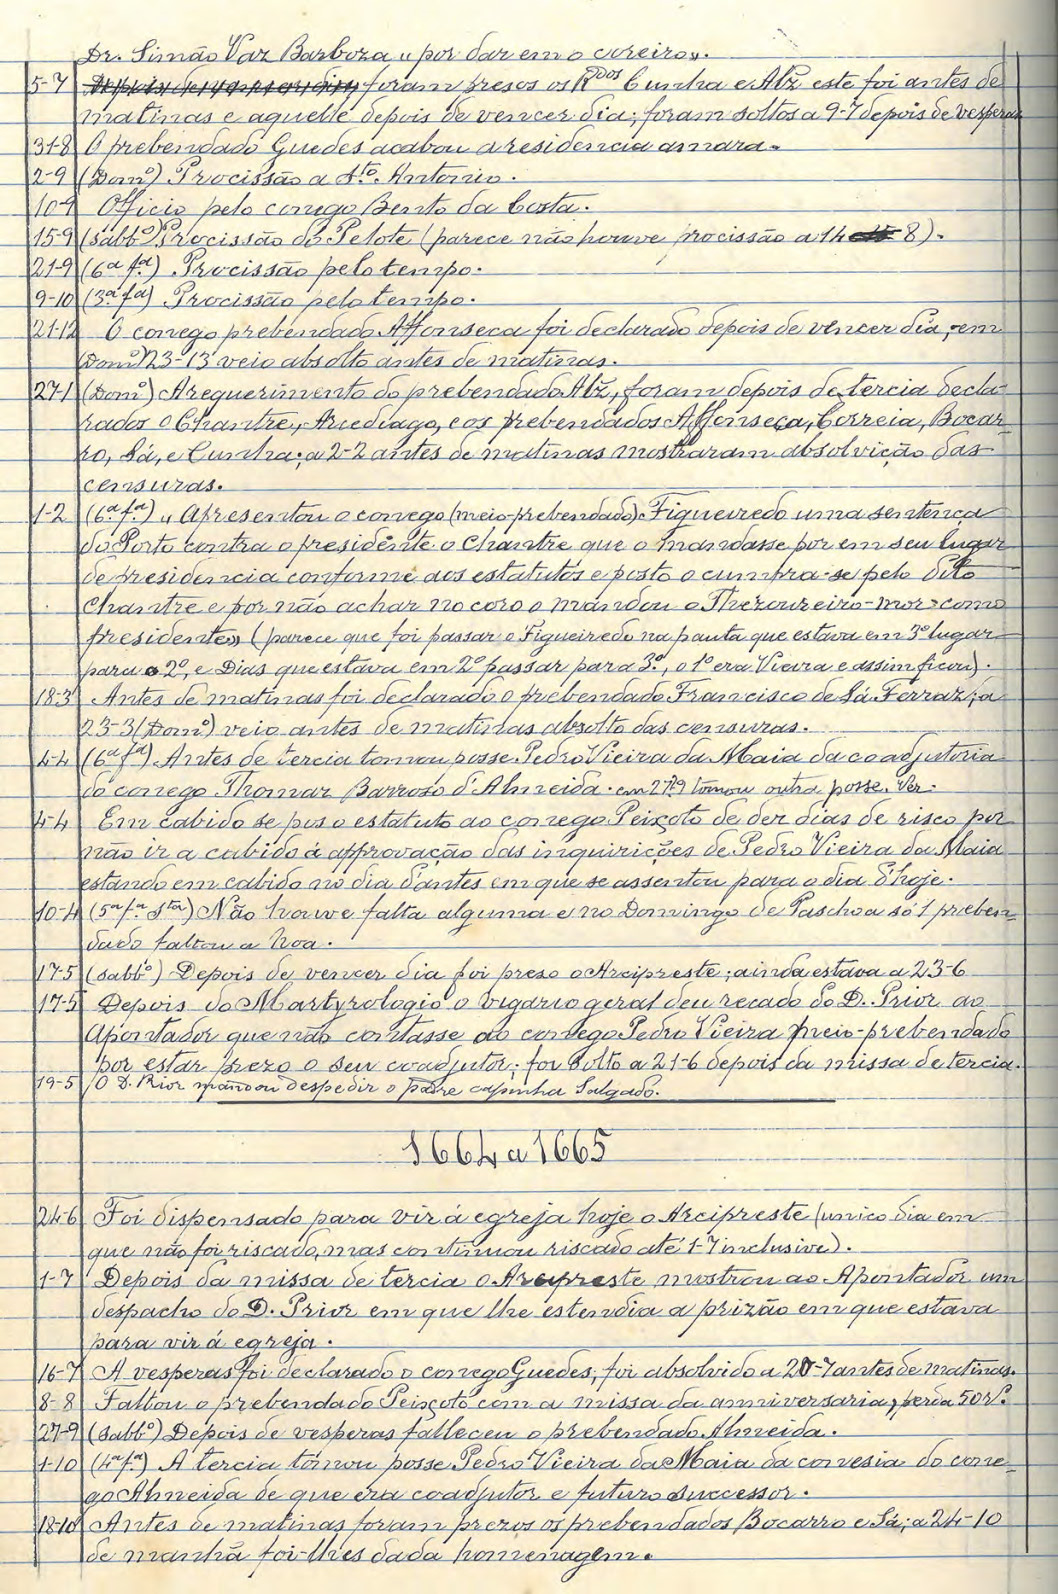 Dr. Simão Vaz Barboza „por dar em o coreiro„.
5-7 foram presos os Rdos Cunha e Alz este foi antes de
matinas e aquelle depois de vencer dia; foram soltos a 9-7 depois de vesperas
31-8 O prebendado Guedes acabou a residencia amara.
2-9 (Domo) Procissão a Sto. Antonio.
10-9 Officio pelo conego Bento da Costa.
15-9 (sabbo) Procissão do Pelote (parece não houve procissão a 14 8).
21-9 (6a fa) Procissão pelo tempo.
9-10 (3a fa) Procissão pelo tempo.
21-12 O conego prebendado Affonseca foi declarado depois de vencer dia, em
(Domo) 23-13 veio absolto antes de matinas.
27-1 (Domo) A requerimento do prebendado Alz, foram depois de tercia decla-
rados o Chantre, Arcediago, e os prebendados Affonseca, Correia, Bocar-
ro, Sá, e Cunha; a 2-2 antes de matinas mostraram absolvição das
censuras.
1-2 (6a fa) „Apresentou o conego (meio-prebendado) Figueiredo uma sentença
do Porto contra o presidente o Chantre que o mandasse por em seu lugar
de presidencia conforme aos estatutos e posto o cumpra-se pelo dito
Chantre e por não achar no coro o mandou o Thezoureiro-mor como
presidente„ (parece que foi passar o Figueiredo na pauta que estava em 3o lugar
para o 2o, e Dias que estava em 2o passar para 3o, o 1o era Vieira e assim ficou).
18-3 Antes de matinas foi declarado o prebendado Francisco de Sá Ferraz; a
23-3 (Domo) veio antes de matinas absolto das censuras.
4-4 (6a fa) Antes de tercia tomou posse Pedro Vieira da Maia da coadjutoria
do conego Thomaz Barroso d'Almeida. em 27-9 tomou outra posse. Ver.
4-4 Em cabido se pos o estatuto ao conego Peixoto de dez dias de risco por
não ir a cabido á approvação das inquirições de Pedro Vieira da Maia
estando em cabido no dia d'antes em que se assentou para o dia d'hoje.
10-4 (5a fa Sta) Não houve falta alguma e no Domingo de Paschoa só 1 preben-
dado faltou a Noa.
17-5 (sabbo) Depois de vencer dia foi prezo o Arcipreste; ainda estava a 23-6
17-5 Depois do Martyrologio o vigario geral deu recado do D. Prior ao
Apontador que não contasse ao conego Pedro Vieira meio-prebendado
por estar prezo o seu coadjutor; foi solto a 21-6 depois da missa de tercia.
19-5 O D. Prior mandou despedir o padre capinha Salgado.
1664 a 1665
24-6 Foi dispensado para vir á egreja hoje o Arcipreste (unico dia em
que não foi riscado, mas continuou riscado até 1-7 inclusive).
1-7 Depois da missa de tercia o Arcipreste mostrou ao Apontador um
despacho do D. Prior em que lhe estendia a prizão em que estava
para vir á egreja.
16-7 A vesperas foi declarado o conego Guedes; foi absolvido a 20-7 antes de matinas.
8-8 Faltou o prebendado Peixoto com a missa da anniversaria, perdia 50 rs.
27-9 (sabbo) Depois de vesperas falleceu o prebendado Almeida.
1-10 (4a fa) A tercia tomou posse Pedro Vieira da Maia da conesia do cone-
go Almeida de que era coadjutor e futuro successor.
18-10 Antes de matinas foram prezos os prebendados Bocarro e Sá; a 24-10
de manhã foi-lhes dada homenagem.